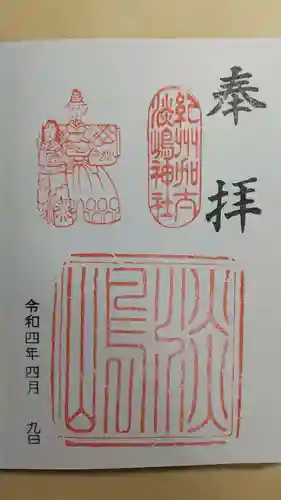 奉拝
紀州加太
淡嶋神社
淡嶋
令和四年四月 九日